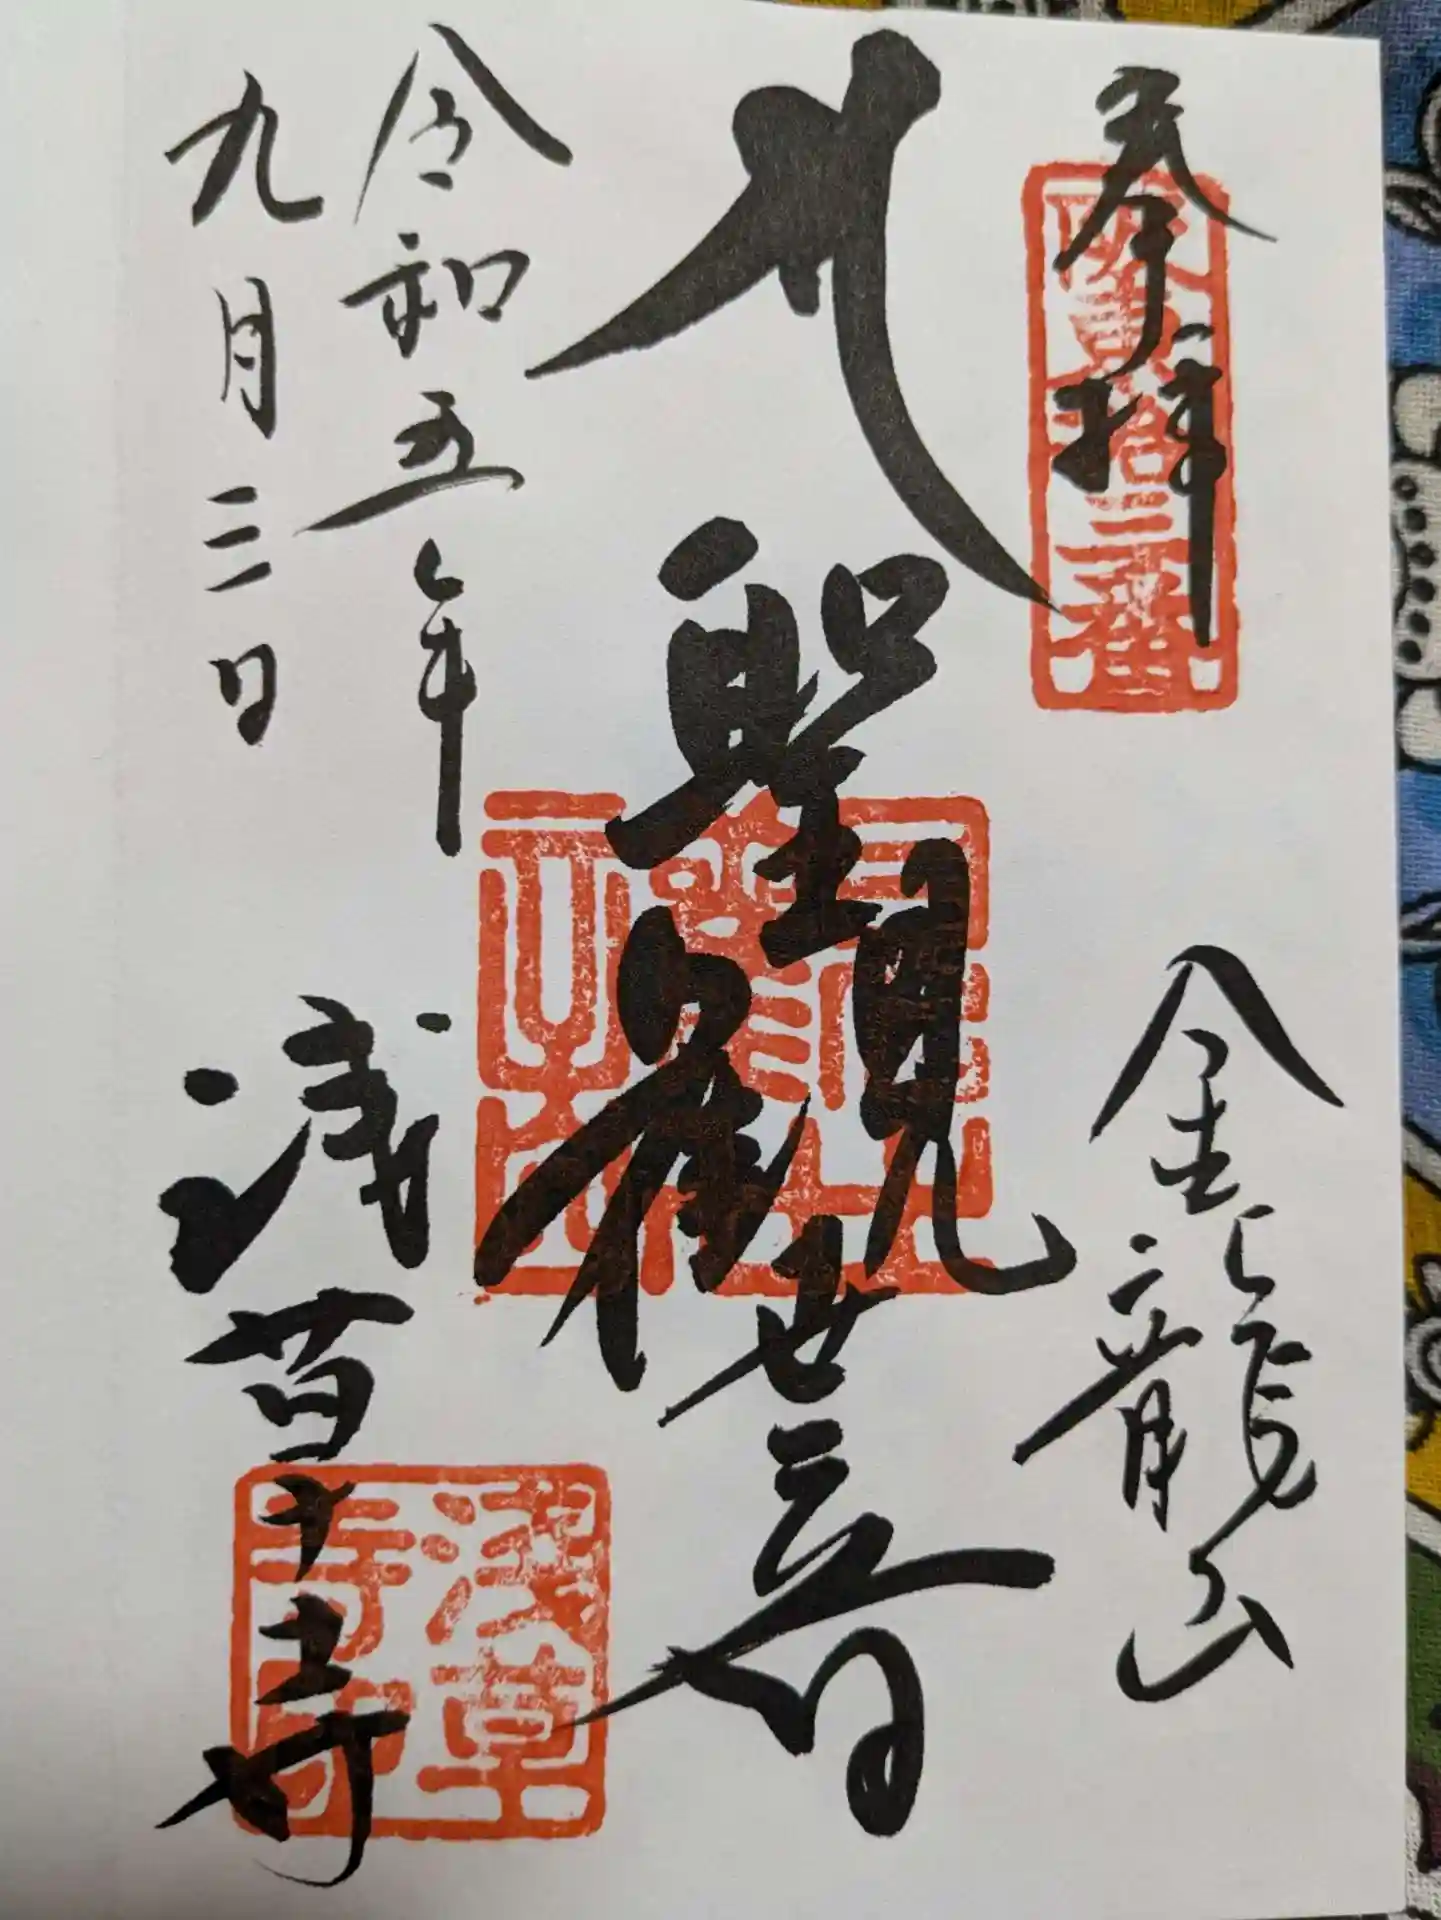 奉拝
坂東拾三番
金龍山
聖観世音
令和五年
九月三日
浅草寺
浅草寺